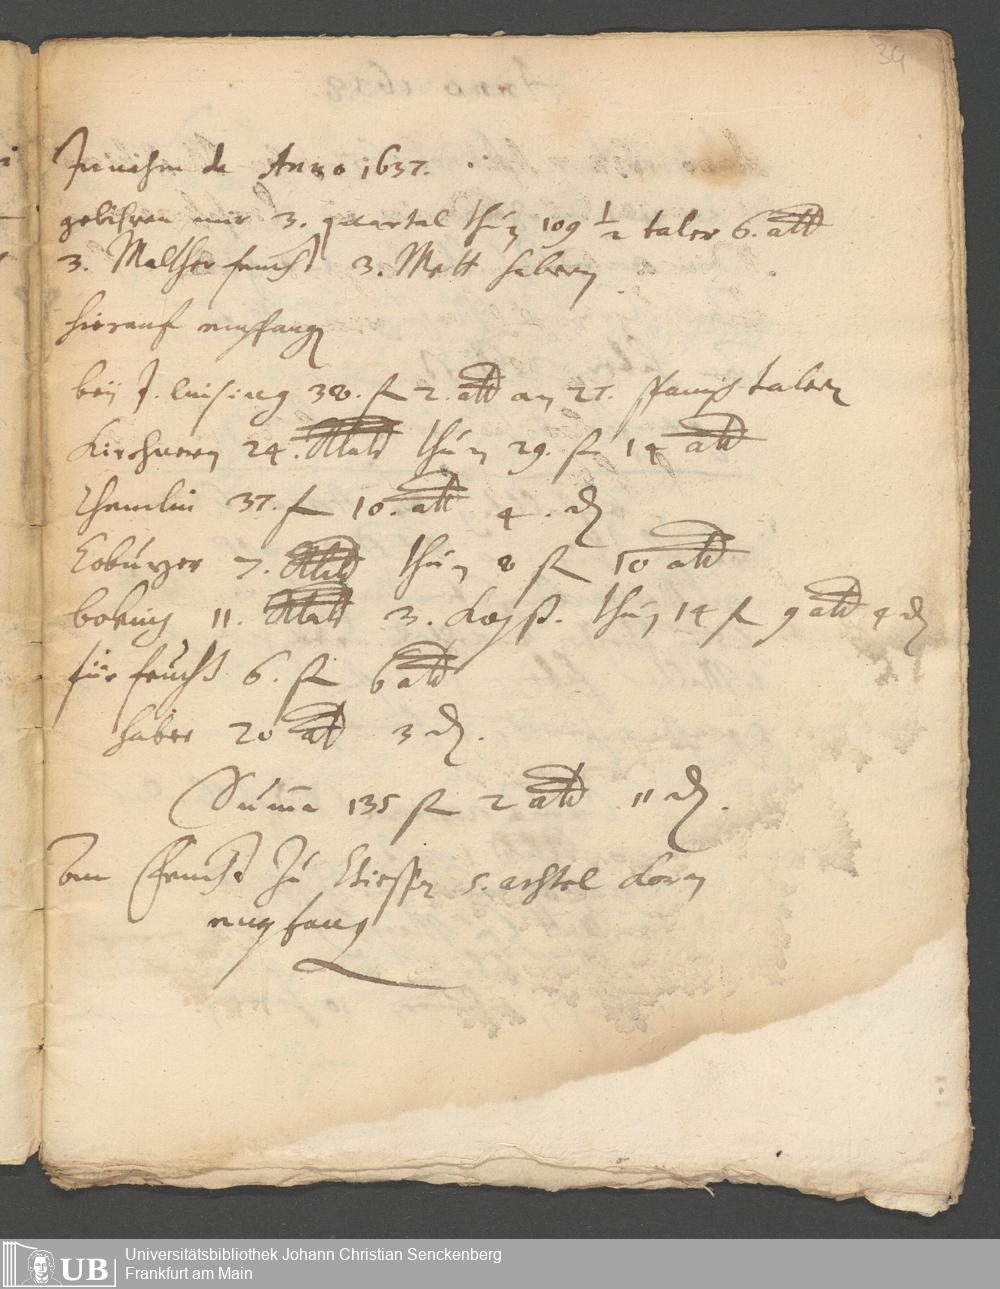 34
Innahm de Anno 1637.
gebühren mir 3. quartal thun 109 1/2 taler 6. alb
3. Malther frucht 3. Mltt habern
hierauf empfang
beÿ J. 38. fl 2. alb an 25. taler
Kirchnern 24. thun 29. fl 14 alb
37. fl 10. alb 4. d
Coburger 7. thun 8 fl 10 alb
11. 3. Kopst. thun 14 fl 9 alb 4 d
für frucht 6. fl 6 alb
haber 20 alb 3 d.
Summa 135 fl 2 alb 11 d.
Von Frucht zu 5. achtel Korn
empfang
UB
Universitätsbibliothek Johann Christian Senckenberg
Frankfurt am Main